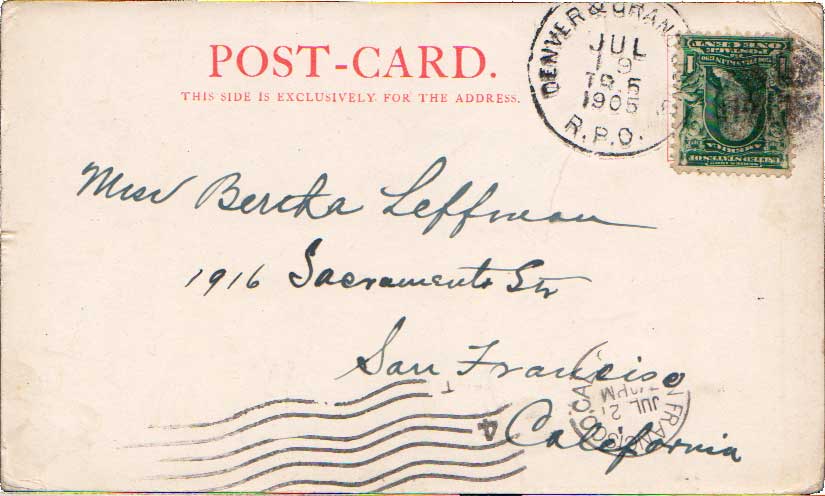 POST-CARD.
THIS SIDE IS EXCLUSIVELY FOR THE ADDRESS.
DENVER & GRAN
JUL
19
TR.5
1905
R.P.O.
ONE CENT
POSTAGE
1
AMERICA
UNITED STATES OF
Miss Bertha Leffman
1916 Sacramento Str
San Francisco
California
N FRANCISCO, CAL
JUL 2
PM
4